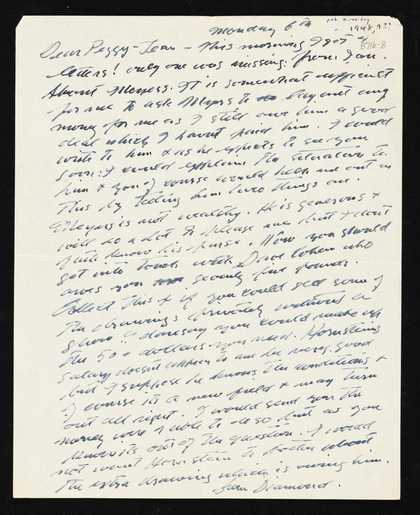 Monday 6th
1948,9??
B716-8
Dear Peggy-Jean - This morning I got
letters! only one was missing. from you.
About Meyers. It is somewhat difficult
for me to ask Meyers to lay out any
money for me as I still owe him a good
deal which I haven't paid him. I could
write to him & as he expects to see you
soon. I would explain the situation to
him & you of course would help me out in
this by telling him how things are.
Meyers is not wealthy. He is generous &
will do a lot to please me but I don't
quite know his purse. Now you should
get into touch with Dave Cohen who
owes you seventy five pounds.
Collect this & if you could sell some of
the drawings privately without a
show? Honestly you would make up
the 500 dollars you need. Hornstein's
salary doesn't appear to me to be very good
but I suppose he knows the conditions &
of course its a new field & may turn
out all right. I would send you the
money were I able to do so but as you
know its out of the question. I would
not want Hornstein to bother about
the extra drawing which is owing him.
Diamond.